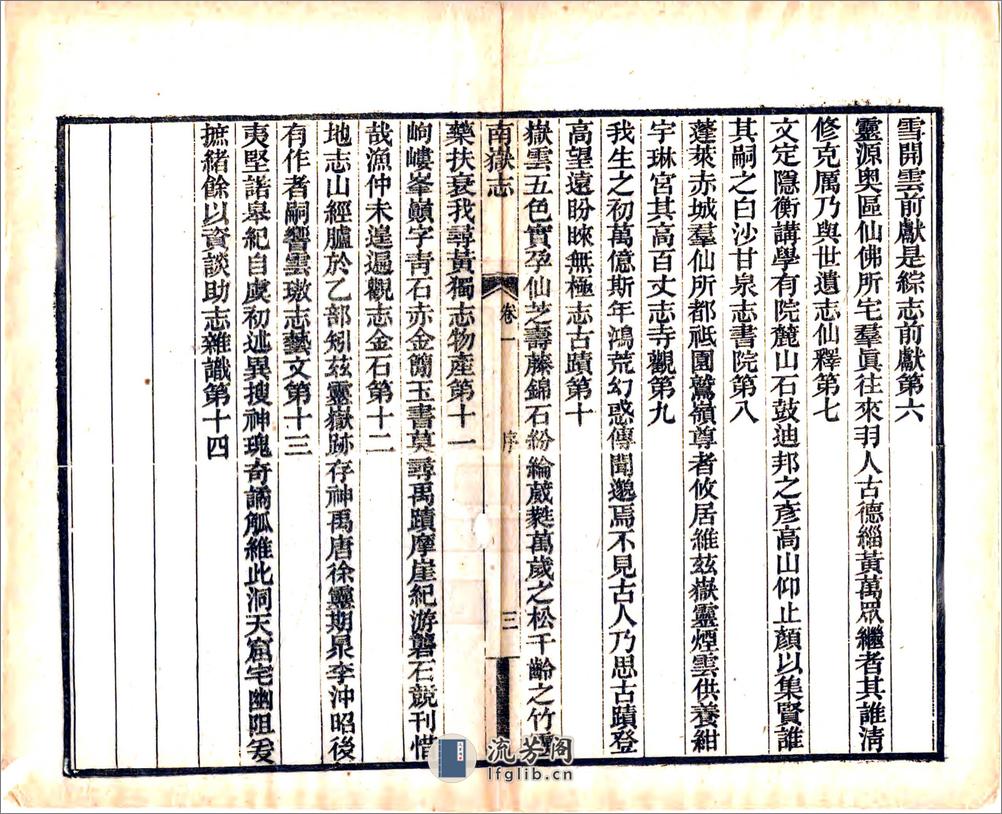 雪開雲前獻是綜志前獻第六
靈源奧區仙佛所宅羣眞往來羽人古德緇黃萬眾繼者其誰淸
修克厲乃與世遺志仙釋第七
文定隱衡講學有院麓山石鼓迪邦之彥高山仰止顏以集賢誰
其嗣之白沙甘泉志書院第八
蓬萊赤城羣仙所都祇園鷲嶺尊者攸居維茲嶽靈煙雲供養紺
宇琳宮其高百丈志寺觀第九
我生之初萬億斯年鴻荒幻惑傳聞邈焉不見古人乃思古蹟登
高望遠盼睞無極志古蹟第十
嶽雲五色實孕仙芝壽藤錦石紛綸葳蕤萬歲之松千齡之竹
南嶽志
卷一
序
三
藥扶衰我尋黃獨志物產第十一
岣嶁峯巓字靑石赤金簡玉書莫尋禹蹟摩崖紀游礱石競刊惜
哉漁仲未遑遍觀志金石第十二
地志山經臚於乙部矧茲靈嶽跡存神禹唐徐靈期泉李沖昭後
有作者嗣響雲璈志藝文第十三
夷堅諾皋紀自虞初述異搜神瑰奇譎觚維此洞天窟宅幽阻爰
摭緒餘以資談助志雜識第十四
流芳阁
lfglib.cn